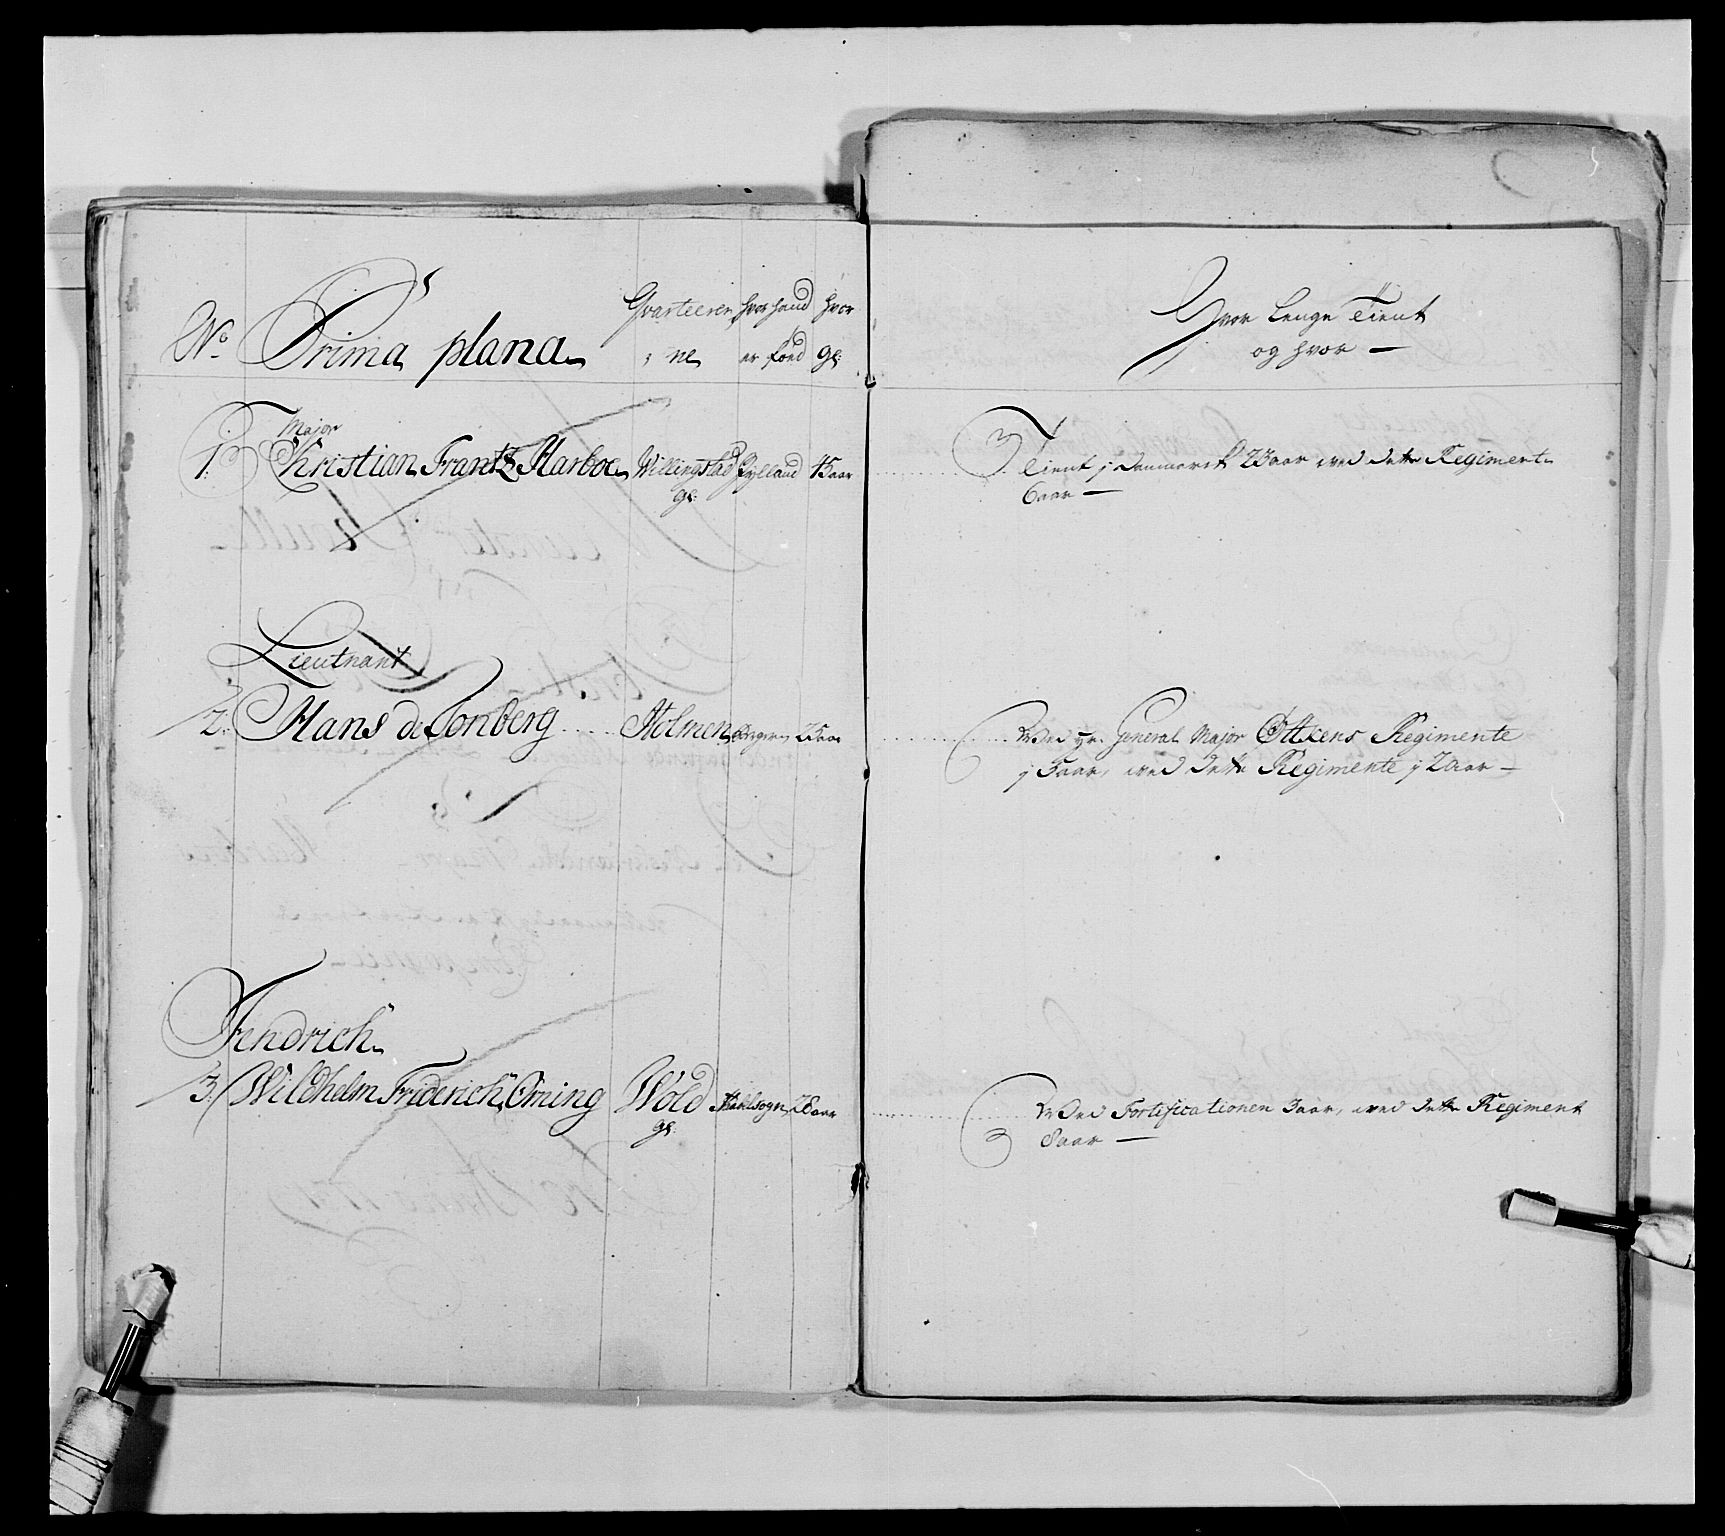 No Prima plana Qvarteerer hvor hand hvor
ne er föed gl:
Major
1. Kristian Frantz Harboe Willingstad Jylland 45 aar
gl:
Lieutnant
2. Hans de Tonberg Holmen Bergen 25 aar
Fendrich
3. Wildhelm Friderich Örning Wold 28 aar
gl:
Hvor Lenge Tient
og hvor
Tient j Danmarck 23 aar, ved dette Regiment
6 aar
Ved Hr. General Major Øttkens Regimente
j 3 aar, ved dette Regimente j 2 aar
Ved Fortificationen 3 aar, ved dette Regiment
8 aar